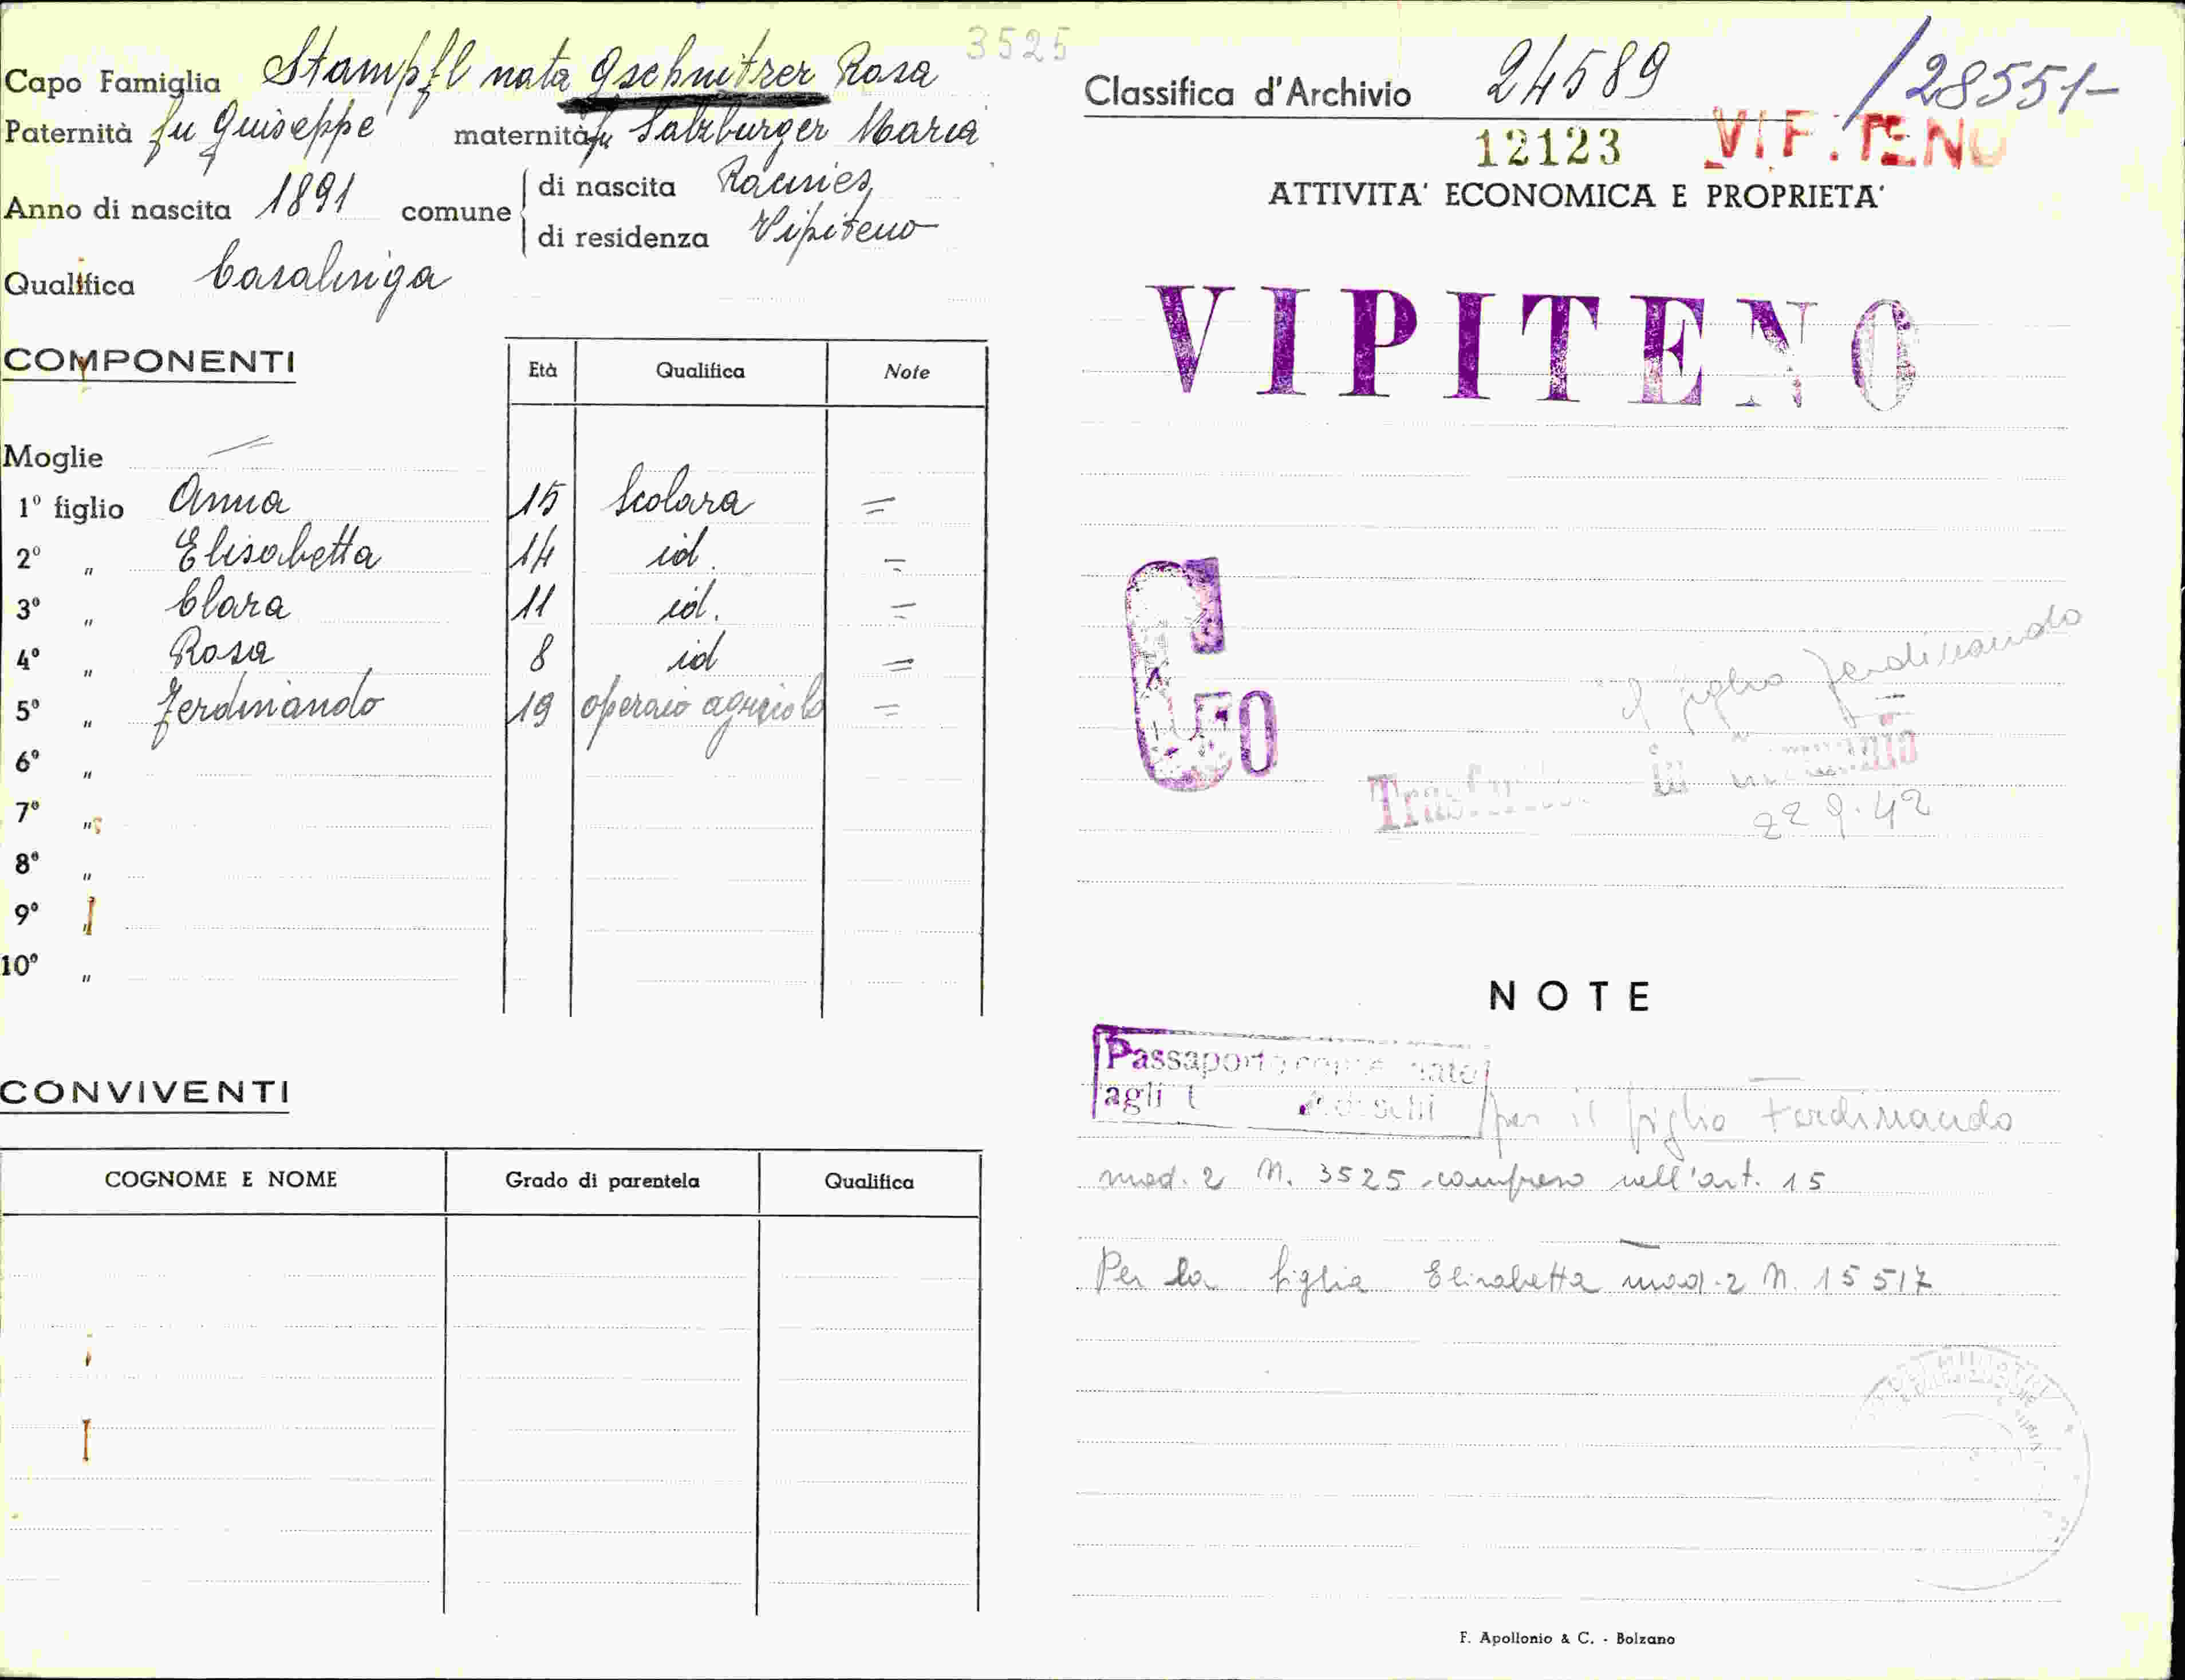 3525
Capo Famiglia Stampfl nata Gschnitzer Rosa
Paternità fu Guiseppe maternità fu Salzburger Maria
Anno di nascita 1891 comune di nascita Racines
di residenza Vipiteno
Qualifica Casalinga
COMPONENTI Età Qualifica Note
Moglie =
1º figlio Anna 15 Scolara =
2º „ Elisabetta 14 id. =
3º „ Clara 11 id. =
4º „ Rosa 8 id =
5º „ Ferdinando 19 operaio agricolo =
6º „
7º „
8º „
9º „
10º „
CONVIVENTI
COGNOME E NOME Grado di parentela Qualifica
Classifica d'Archivio 24589 /28551-
12123 VIPITENO
ATTIVITA' ECONOMICA E PROPRIETA'
VIPITENO
G
50
Il figlio Ferdinando
in
22 9.42
NOTE
Passaporto
agli
per il figlio Ferdinando
mod. 2 N. 3525 compreso nell'art. 15
Per la figlia Elisabetta mod. 2 N. 15517
F. Apollonio & C. - Bolzano